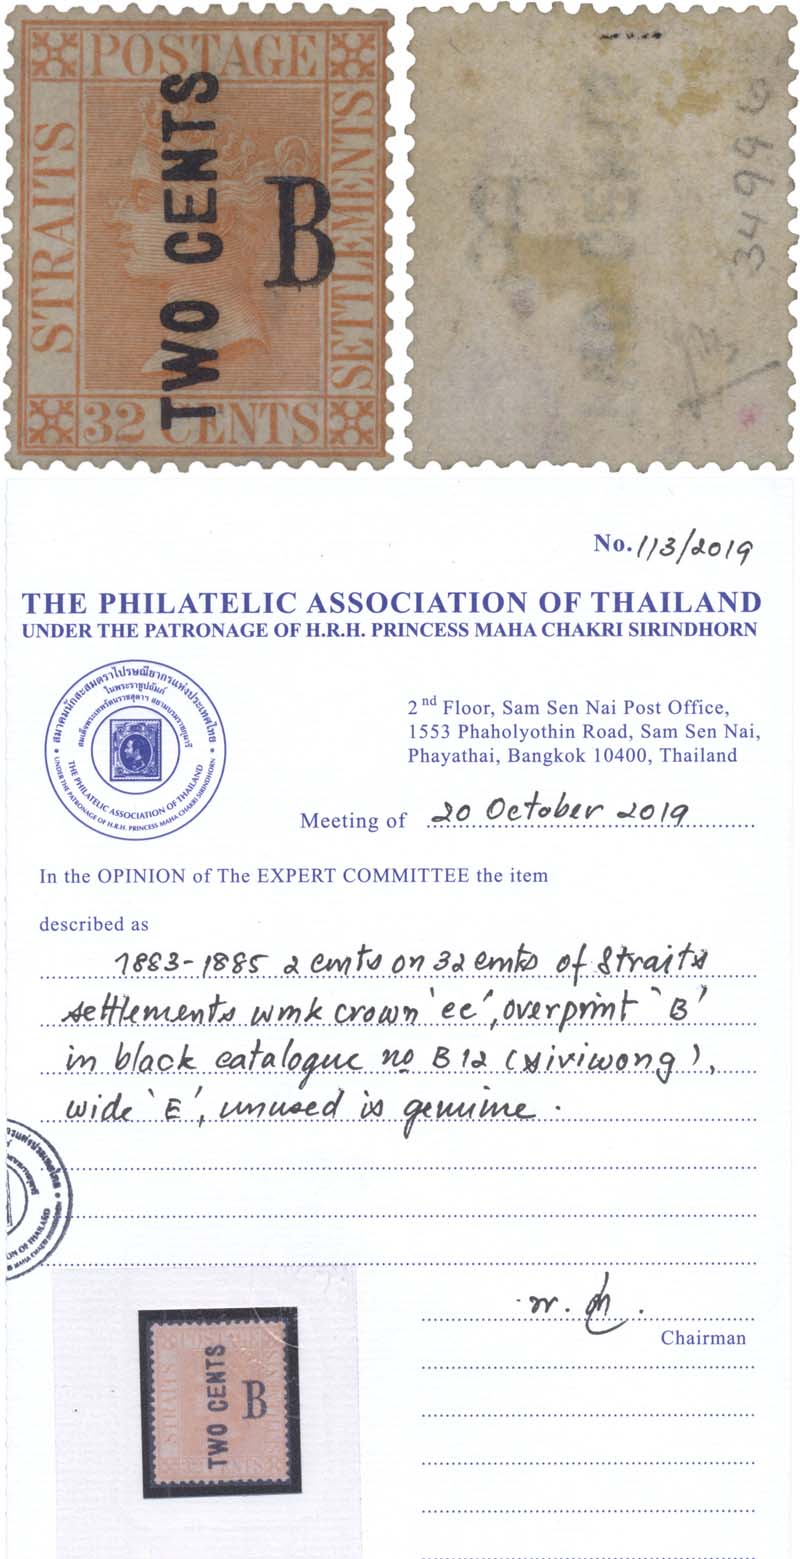 POSTAGE
STRAITS
SETTLEMENTS
TWO CENTS
B
32 CENTS
34996
No. 113/2019
THE PHILATELIC ASSOCIATION OF THAILAND
UNDER THE PATRONAGE OF H.R.H. PRINCESS MAHA CHAKRI SIRINDHORN
สมาคมนักสะสมตราไปรษณียากรแห่งประเทศไทย
ในพระราชูปถัมภ์
สมเด็จพระเทพรัตนราชสุดาฯ สยามบรมราชกุมารี
THE PHILATELIC ASSOCIATION OF THAILAND
UNDER THE PATRONAGE OF H.R.H. PRINCESS MAHA CHAKRI SIRINDHORN
2nd Floor, Sam Sen Nai Post Office,
1553 Phaholyothin Road, Sam Sen Nai,
Phayathai, Bangkok 10400, Thailand
Meeting of 20 October 2019
In the OPINION of The EXPERT COMMITTEE the item
described as
1883-1885 2 cents on 32 cents of Straits
settlements wmk crown 'cc', overprint 'B'
in black catalogue no B12 (siriwong),
wide 'E', unused is genuine.
Chairman
STRAITS
TWO CENTS
B